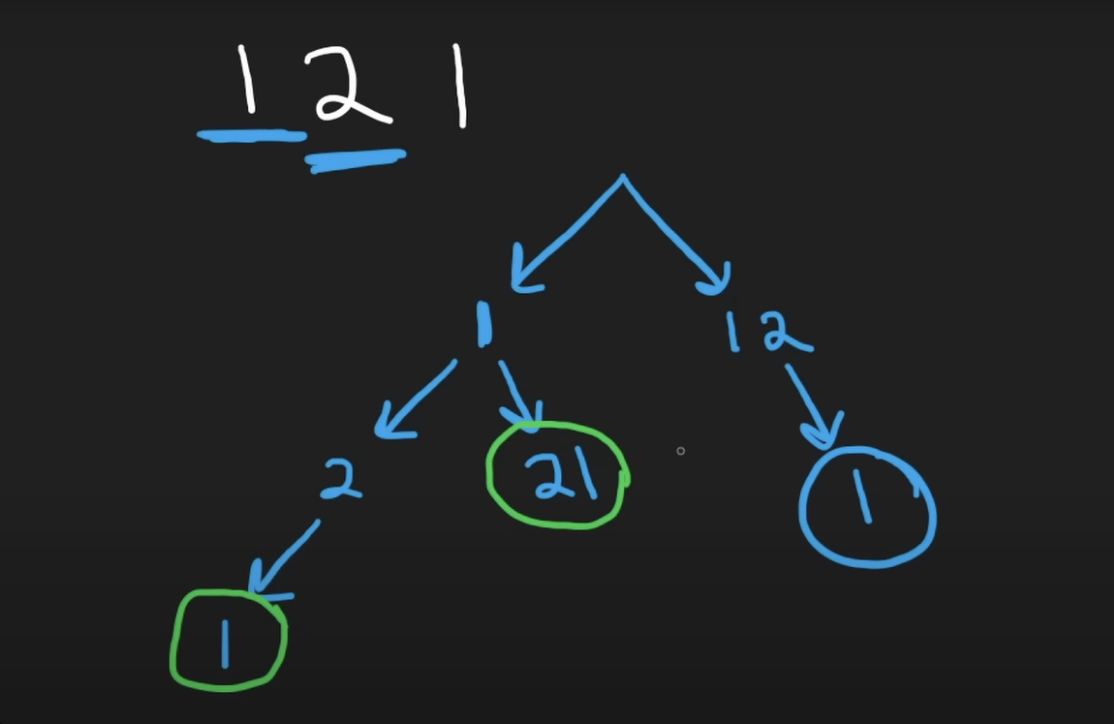 1 2 1
1 12
2 21 1
1